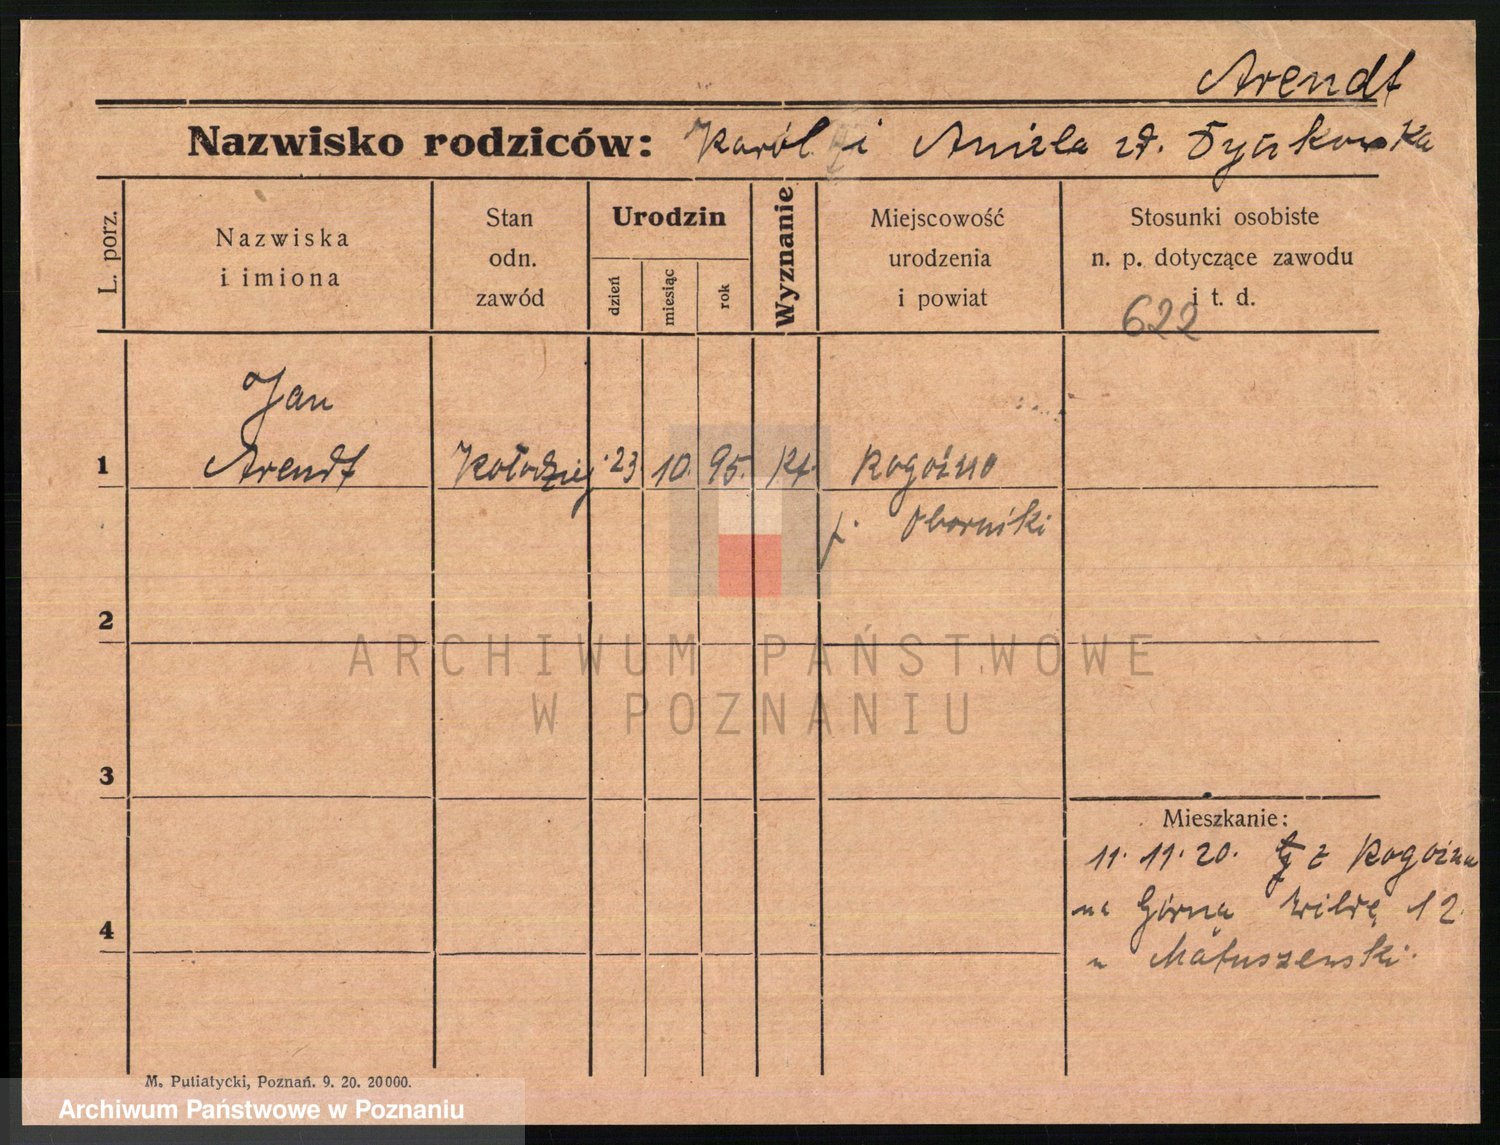 Arendt
Nazwisko rodziców: Karól i Aniela zd.
L. porz.
Nazwiska
i imiona
Stan
odn.
zawód
Urodzin
dzień
miesiąc
rok
Wyznanie
Miejscowość
urodzenia
i powiat
Stosunki osobiste
n. p. dotyczące zawodu
i t. d.
622
Jan
1 Arendt Kołodziej 23 10. 95. kt. Rogoźno
p. Oborniki
2
ARCHIWUM PAŃSTWOWE
W POZNANIU
3
Mieszkanie:
11. 11. 20. z Rogoźna
4 na Górną Wildę 12.
u Matuszewski.
M. Putiatycki, Poznań. 9. 20. 20000.
Archiwum Państwowe w Poznaniu